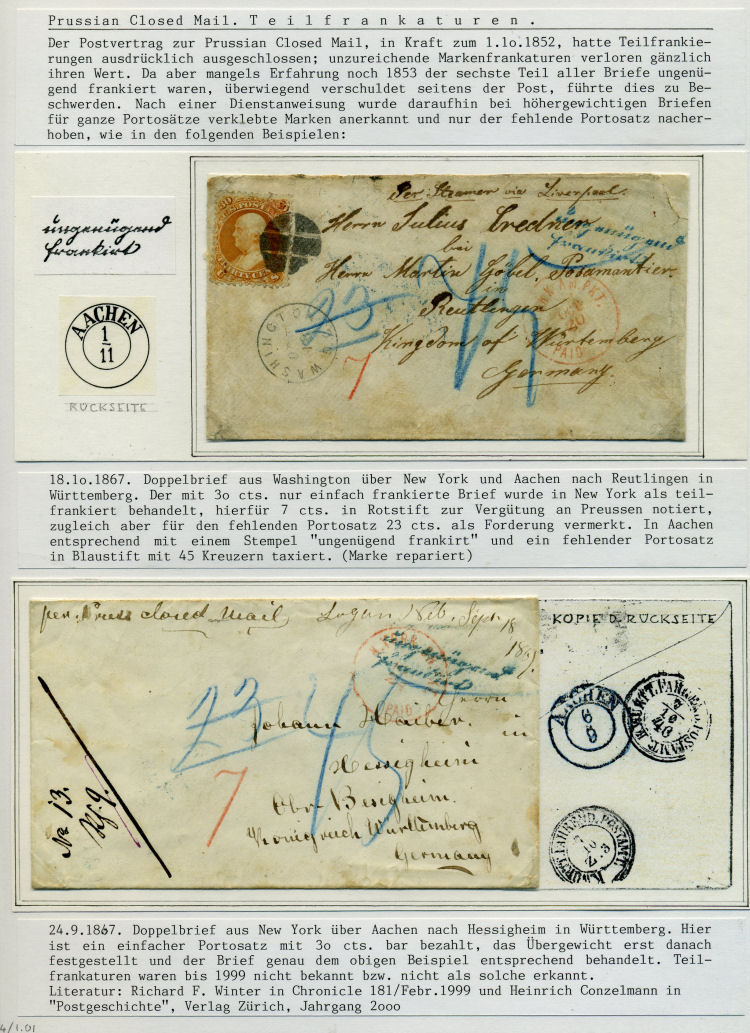 Prussian Closed Mail. Teilfrankaturen.
Der Postvertrag zur Prussian Closed Mail, in Kraft zum 1.1o.1852, hatte Teilfrankie-
rungen ausdrücklich ausgeschlossen; unzureichende Markenfrankaturen verloren gänzlich
ihren Wert. Da aber mangels Erfahrung noch 1853 der sechste Teil aller Briefe ungenü-
gend frankiert waren, überwiegend verschuldet seitens der Post, führte dies zu Be-
schwerden. Nach einer Dienstanweisung wurde daraufhin bei höhergewichtigen Briefen
für ganze Portosätze verklebte Marken anerkannt und nur der fehlende Portosatz nacher-
hoben, wie in den folgenden Beispielen:
ungenügend
frankirt
AACHEN
1
11
RÜCKSEITE
Per Steamer via Liverpool.
Herrn Julius Credner
bei
Herrn Martin Göbel, Posamantier
in
Reutlingen
Kingdom of Würtemberg
Germany
ungenügend
frankirt
23
45
7
WASHINGTON
PAID
18.1o.1867. Doppelbrief aus Washington über New York und Aachen nach Reutlingen in
Württemberg. Der mit 3o cts. nur einfach frankierte Brief wurde in New York als teil-
frankiert behandelt, hierfür 7 cts. in Rotstift zur Vergütung an Preussen notiert,
zugleich aber für den fehlenden Portosatz 23 cts. als Forderung vermerkt. In Aachen
entsprechend mit einem Stempel "ungenügend frankirt" und ein fehlender Portosatz
in Blaustift mit 45 Kreuzern taxiert. (Marke repariert)
per. Pruss closed Mail Logan Neb. Sept. 18
1867.
ungenügend
frankirt
PAID
23
45
7
Herrn
Johann Hauber. in
Hessigheim
Obr. Besigheim.
Königreich Wurttemberg
Germany
No. 13.
KOPIE D. RÜCKSEITE
AACHEN
6
8
K.WÜRTT.FAHREND.POSTAMT
7
10
Z.3
24.9.1867. Doppelbrief aus New York über Aachen nach Hessigheim in Württemberg. Hier
ist ein einfacher Portosatz mit 3o cts. bar bezahlt, das Übergewicht erst danach
festgestellt und der Brief genau dem obigen Beispiel entsprechend behandelt. Teil-
frankaturen waren bis 1999 nicht bekannt bzw. nicht als solche erkannt.
Literatur: Richard F. Winter in Chronicle 181/Febr.1999 und Heinrich Conzelmann in
"Postgeschichte", Verlag Zürich, Jahrgang 2ooo
4/1.01